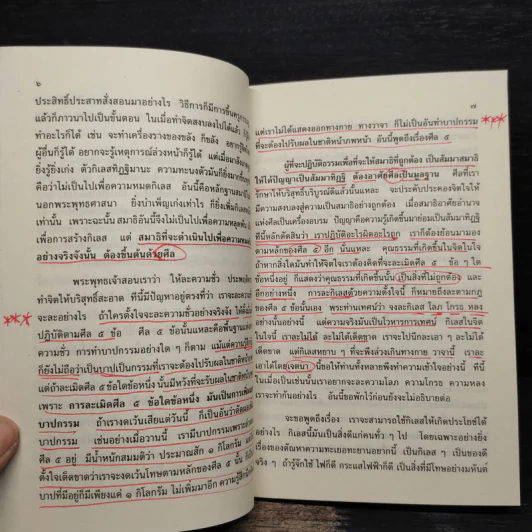 ๖
ประสิทธิ์ประสาทสั่งสอนมาอย่างไร วิธีการก็มีการขึ้นครู
แล้วก็ภาวนาไปเป็นขั้นตอน ในเมื่อทำจิตสงบลงไปได้แล้ว
ทำอะไรก็ได้ เช่น จะทำเครื่องรางของขลัง ก็ขลัง อยากรู้
ผู้อื่นก็รู้ได้ อยากจะรู้เหตุการณ์ล่วงหน้าก็รู้ได้ แต่เมื่อมา
ยิ่งรู้ยิ่งเก่ง ตัวกิเลสทิฏฐิมานะ ความทะนงตัวมันก็ยิ่งมากขึ้น
คือว่าไม่เป็นไปเพื่อความหมดกิเลส อันนี้คือหลักฐานสมาธิ
นอกพระพุทธศาสนา ยิ่งบำเพ็ญเก่งเท่าไร ก็ยิ่งเพิ่มกิเลส
เท่านั้น เพราะฉะนั้น สมาธิอันนี้จึงไม่เป็นไปเพื่อความหลุดพ้น
เพื่อการสร้างกิเลส แต่ สมาธิที่จะดำเนินไปเพื่อความหลุดพ้น
อย่างจริงจังนั้น ต้องขึ้นต้นด้วยศีล
พระพุทธเจ้าสอนเราว่า ให้ละความชั่ว ประพฤติ
ทำจิตให้บริสุทธิ์สะอาด ทีนี้มีปัญหาอยู่ตรงที่ว่า เราจะละความ
จะละอย่างไร ถ้าใครตั้งใจจะละความชั่วอย่างจริงจัง ให้
ปฏิบัติตามศีล ๕ ข้อ ศีล ๕ ข้อนั้นแหละคือพื้นฐาน
ความชั่ว การทำบาปกรรมอย่างใด ๆ ก็ตาม แม้แต่ความรู้สึก
ก็ยังไม่ถือว่าเป็นบาปเป็นกรรมที่เราจะต้องไปรับผลในชาติหน้า
แต่ถ้าละเมิดศีล ๕ ข้อใดข้อหนึ่ง นั่นมีหวังที่จะรับผลในชาติหน้า
เพราะ การละเมิดศีล ๕ ข้อใดข้อหนึ่ง มันเป็นการเพิ่ม
บาปกรรม ถ้าเรางดเว้นเสียแต่วันนี้ ก็เป็นอันว่าตัดทอน
บาปกรรม เช่นอย่างเมื่อวานนี้ เรามีบาปกรรมเพราะ
ศีล ๕ อยู่ มีน้ำหนักสมมติว่า ประมาณสัก ๑ กิโลกรัม
ตั้งใจเด็ดขาดว่าเราจะงดเว้นโทษตามหลักของศีล ๕ นั้น
บาปที่มีอยู่ก็มีเพียงแค่ ๑ กิโลกรัม ไม่เพิ่มมาอีก ความรู้สึก
๗
แต่เราไม่ได้แสดงออกทางกาย ทางวาจา ก็ไม่เป็นอันทำบาปกรรม
ที่จะต้องไปรับผลในชาติหน้าภพหน้า อันนี้พูดถึงเรื่องศีล ๕
ผู้ที่จะปฏิบัติธรรมเพื่อที่จะให้สมาธิที่ถูกต้อง เป็นสัมมาสมาธิ
ให้ได้ปัญญาเป็นสัมมาทิฏฐิ ต้องอาศัยศีลเป็นมูลฐาน ศีลที่เรา
รักษาให้บริสุทธิ์บริบูรณ์ดีแล้วนั้นแหละ จะประคับประคองจิตใจให้
มีความสงบลงสู่ความเป็นสมาธิอย่างถูกต้อง เมื่อสมาธิอาศัยอำนาจ
แห่งศีลเป็นเครื่องอบรม ปัญญาคือความรู้เกิดขึ้นมาย่อมเป็นสัมมาทิฏฐิ
ทีนี้หลักตัดสินว่า เราปฏิบัติอะไรผิดอะไรถูก เราก็ต้องย้อนมามอง
ตามหลักของศีล ๕ อีก นั่นแหละ คุณธรรมที่เกิดขึ้นในจิตในใจ
ถ้าหากสิ่งใดมันทำให้จิตใจเราต้องคิดที่จะละเมิดศีล ๕ ข้อ ๆ ใด
ข้อหนึ่งอยู่ ก็แสดงว่าคุณธรรมที่เกิดขึ้นนั้น เป็นสิ่งที่ไม่ถูกต้อง และ
อีกอย่างหนึ่ง การละกิเลสด้วยความตั้งใจนี้ ก็หมายถึงละตามกฎ
ของศีล ๕ ข้อนั้นเอง พระท่านเทศน์ว่า จงละกิเลส โลภ โกรธ หลง
อย่างนั้นอย่างนี้ แต่ความจริงมันเป็นโวหารการเทศน์ กิเลสในจิต
ในใจนี้ เราละไม่ได้ ละไม่ได้เด็ดขาด เราจะไปนึกละเอา ๆ ละไม่ได้
เด็ดขาด แต่กิเลสหยาบ ๆ ที่จะพึงล่วงเกินทางกาย วาจานี้ เราละ
เอาได้โดยเจตนา นี้ขอให้ท่านทั้งหลายพึงทำความเข้าใจอย่างนี้ ทีนี้
ในเมื่อเป็นเช่นนั้นเราอยากจะละความโลภ ความโกรธ ความหลง
เราจะทำกันอย่างไร อันนี้ขอพักไว้ก่อนยังจะไม่อธิบายต่อ
จะขอพูดถึงเรื่อง เราจะสามารถใช้กิเลสให้เกิดประโยชน์ได้
อย่างไร กิเลสนี้มันเป็นสิ่งที่มีแก่คนทั่ว ๆ ไป โดยเฉพาะอย่างยิ่ง
เรื่องของตัณหาความทะเยอทะยานอยากนี้ เป็นกิเลส ๆ เป็นของดี
จริง ๆ ถ้ารู้จักใช้ ไฟก็ดี กระแสไฟฟ้าก็ดี เป็นสิ่งที่มีโทษอย่างมหันต์